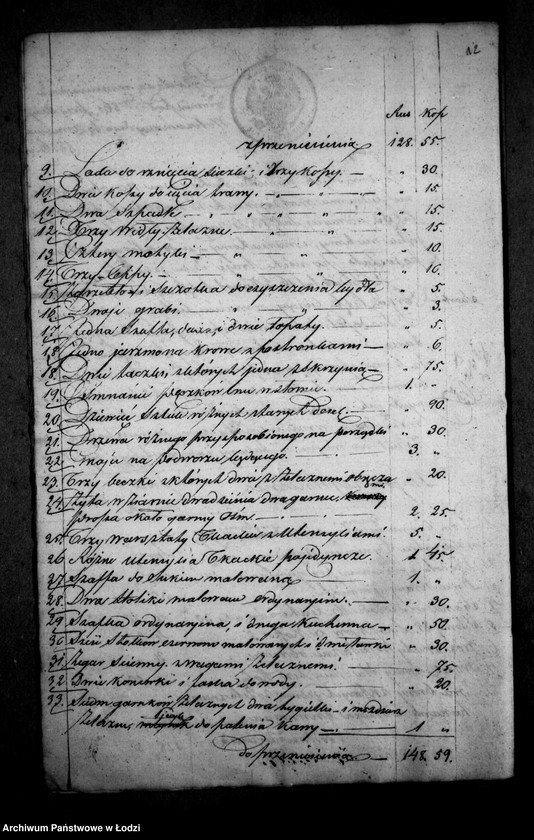 12
Rus Kop
z przeniesienia 128. 55.
9. Lada do rznięcia sieczki i trzy Kopy. — " 30.
10. Dwie Kopy do cięcia trawy. — " 15.
11. Dwa Szpadle — " 15.
12. Trzy Widły żelazne. " 15.
13. Cztery motyki — " 10.
14. Trzy Cepy. — " 16.
15. Zgrzebło i Szczotka do czyszczenia bydła " 5.
16. Dwoje grabi. " 3.
17. Jedna i dwie Łopaty. " 5.
18. Jedno jarzmo na krowę z postronkami — " 6.
18. Dwie taczki jedna z skrzynią — " 75.
19. pęczków lnu w słomie. 1. "
20. Dziewięć Sztuk różnych starych Desek. " 90.
21. Drzewa różnego przysposobionego na porządki " 30.
22. na podworzu będącego. 3. "
23. Trzy beczki z których dwie z żelaznemi obręczami " 20.
24. Żyta w ziarnie dwadzieścia dwa garncy,
prosa około garncy Ośm. 2. 25.
25. Trzy warsztaty Tkackie z Utensyliami. 5. "
26. Różne utensylia Tkackie pojedyncze. 1 45.
27. Szaffa do Sukien malowana 1. "
28. Dwa Stoliki malowane ordynaryine. — " 30.
29. Szafka ordynaryina, i druga Kuchenna — " 50.
30. Sześć Stołków czerwono malowanych i " 30.
31. Zegar Scienny z wagami żelaznemi — " 75.
32. Dwie Konewki i do wody. " 20.
33. Siedm garnków żelaznych dwa tygielki i moździerz
żelazny, do palenia Kawy — 1 "
do przeniesienia — 148. 59.
Archiwum Państwowe w Łodzi